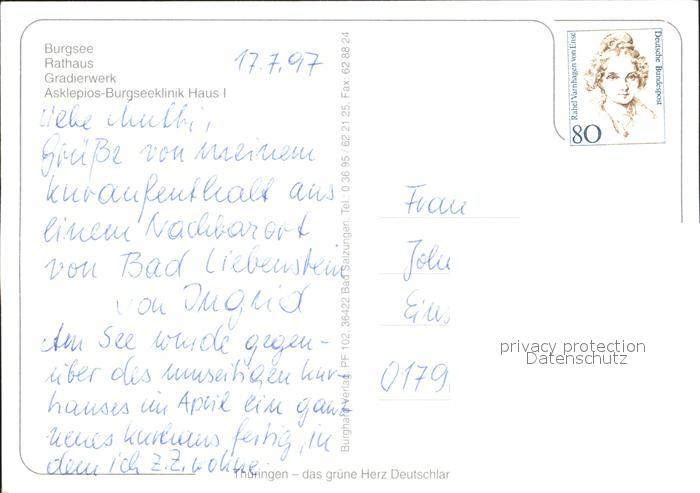 Burgsee
Rathaus
Gradierwerk
Asklepios-Burgseeklinik Haus I
17.7.97
Liebe Mutti,
Grüße von meinem
Kuraufenthalt aus
einem Nachbarort
von Bad Liebenstein
von Ingrid
Am See wurde gegen-
über des umseitigen Kur-
hauses im April ein ganz
neues Kurhaus fertig, in
dem ich z.Z. wohne.
Burghard Verlag, PF 102, 36422 Bad Salzungen, Tel.: 0 36 95 / 62 21 25, Fax: 62 88 24
Rahel Varnhagen von Ense
Deutsche Bundespost
80
Frau
0179
privacy protection
Datenschutz
Thüringen – das grüne Herz Deutschlan